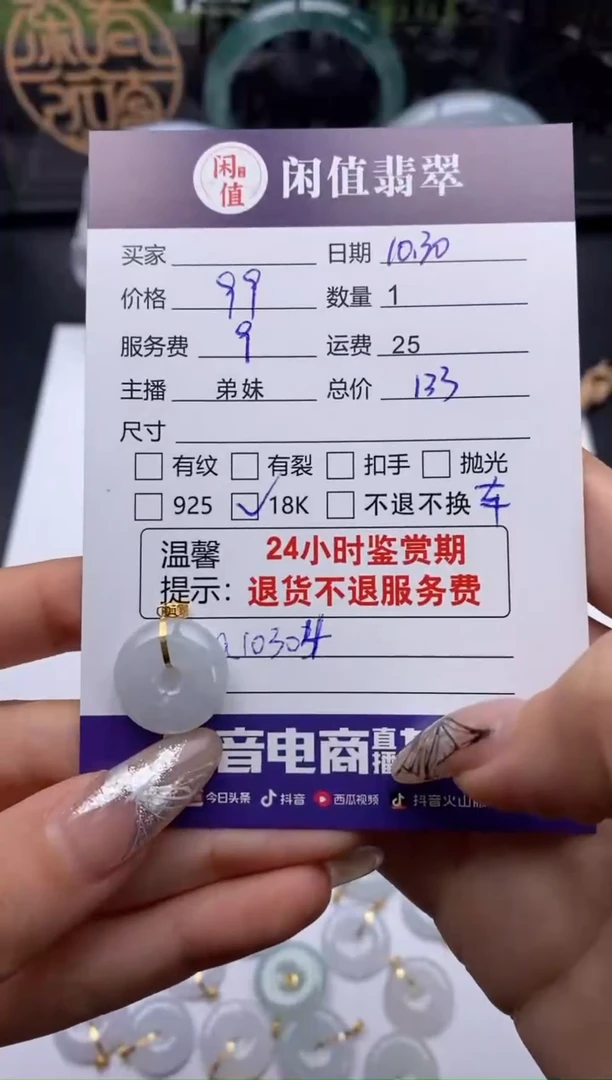 闲值 闲值翡翠
买家 日期 10.30
价格 99 数量 1
服务费 9 运费 25
主播 弟妹 总价 133
尺寸
有纹 有裂 扣手 抛光
925 18K 不退不换 车
温馨 24小时鉴赏期
提示: 退货不退服务费
10304
音电商直播
今日头条 抖音 西瓜视频 抖音火山版